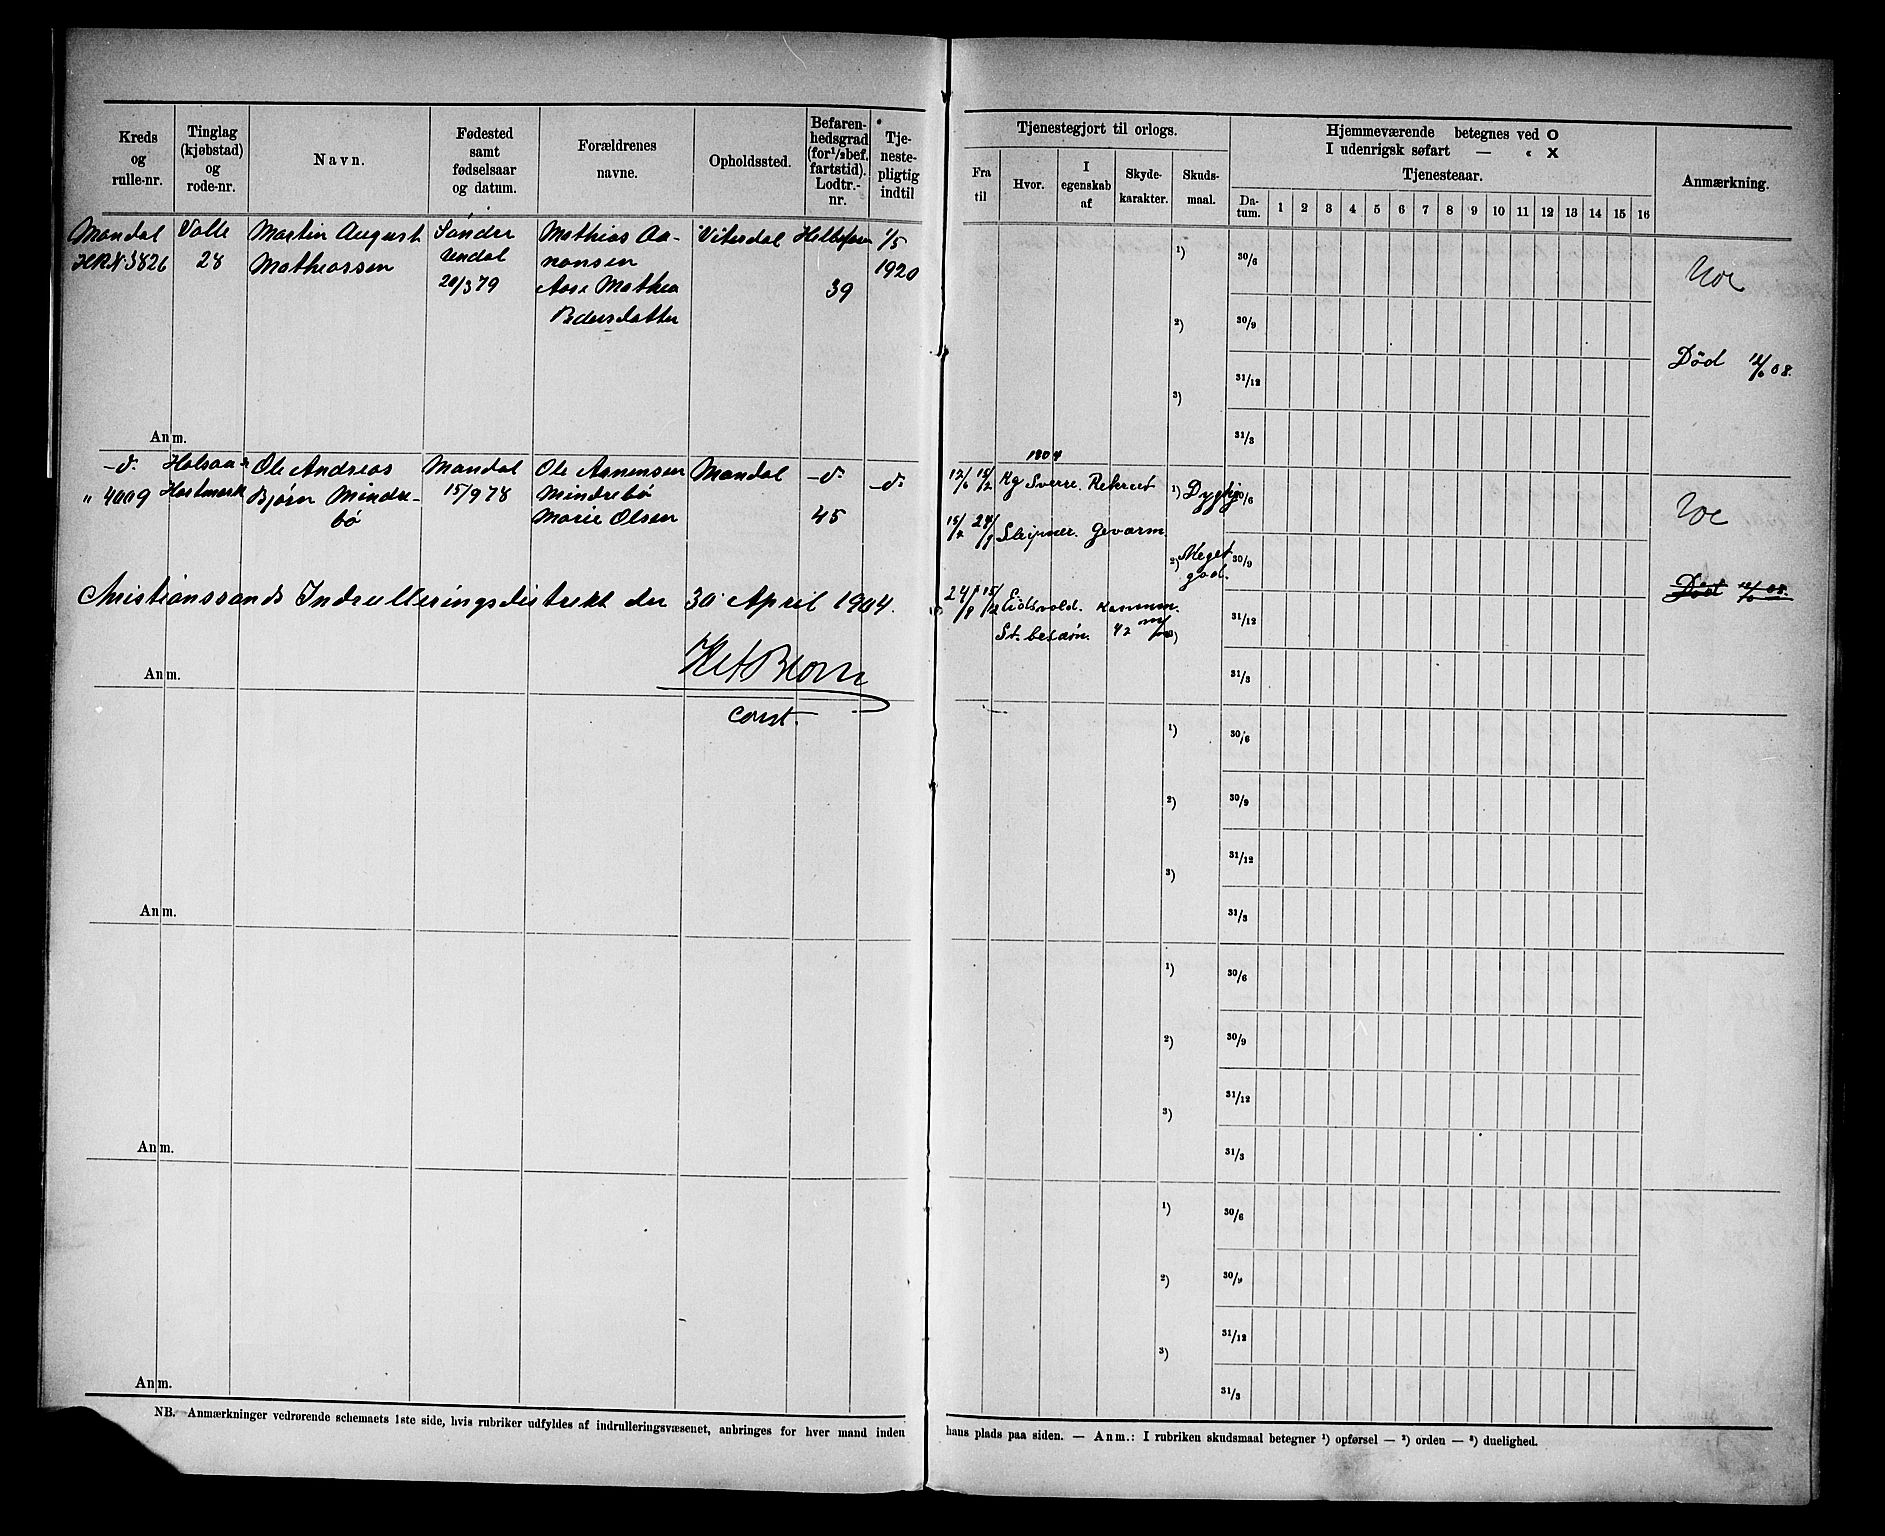 Kreds
og
rulle-nr.
Tinglag
(kjøbstad)
og
rode-nr.
Navn.
Fødested
samt
fødselsaar
og datum.
Forældrenes
navne.
Opholdssted.
Befaren-
hedsgrad
(for 1/2 bef.
fartstid).
Lodtr.-
nr.
Tje-
neste-
pligtig
indtil
Tjenestegjort til orlogs.
Fra
til
Hvor.
I
egenskab
af
Skyde-
karakter.
Skuds-
maal.
Hjemmeværende betegnes ved O
I udenrigsk søfart — « X
Tjenesteaar.
Da-
tum.
1 2 3 4 5 6 7 8 9 10 11 12 13 14 15 16
Anmærkning.
Mandal
3826
Valle
28
Martin August
Mathiassen
Sønder
undal
20/3 79
Mathias Aa-
nonsen
Aase Mathea
Pedersdatter
Vitersdal
Helbefaren
39
1/5
1920
1)
2)
3)
30/6
30/9
31/12
31/3
Død 12/6 08.
Anm.
-d-
" 4009
Halsaa &
Hartmark
Ole Andreas
Bjørn Mindre-
bø
Mandal
15/9 78
Ole Aanensen
Mindrebø
Marie Olsen
Mandal
-d-
45
-d-
1904
12/6 15/2 Kg Sverre. Rekrut
15/2 24/8 Sleipner. Geværm.
24/8 15/12 Eidsvold. Kanonm.
St. besætn. 42 m/m
1) Dygtig
2) Meget
god.
3)
30/6
30/9
31/12
31/3
Død 12/6 08.
Christianssands Indrulleringsdistrikt den 30 April 1904.
const.
Anm.
1)
2)
3)
30/6
30/9
31/12
31/3
Anm.
1)
2)
3)
30/6
30/9
31/12
31/3
Anm.
1)
2)
3)
30/6
30/9
31/12
31/3
Anm.
NB. Anmærkninger vedrørende schemaets 1ste side, hvis rubriker udfyldes af indrulleringsvæsenet, anbringes for hver mand inden
hans plads paa siden. — Anm.: I rubriken skudsmaal betegner 1) opførsel — 2) orden — 3) duelighed.